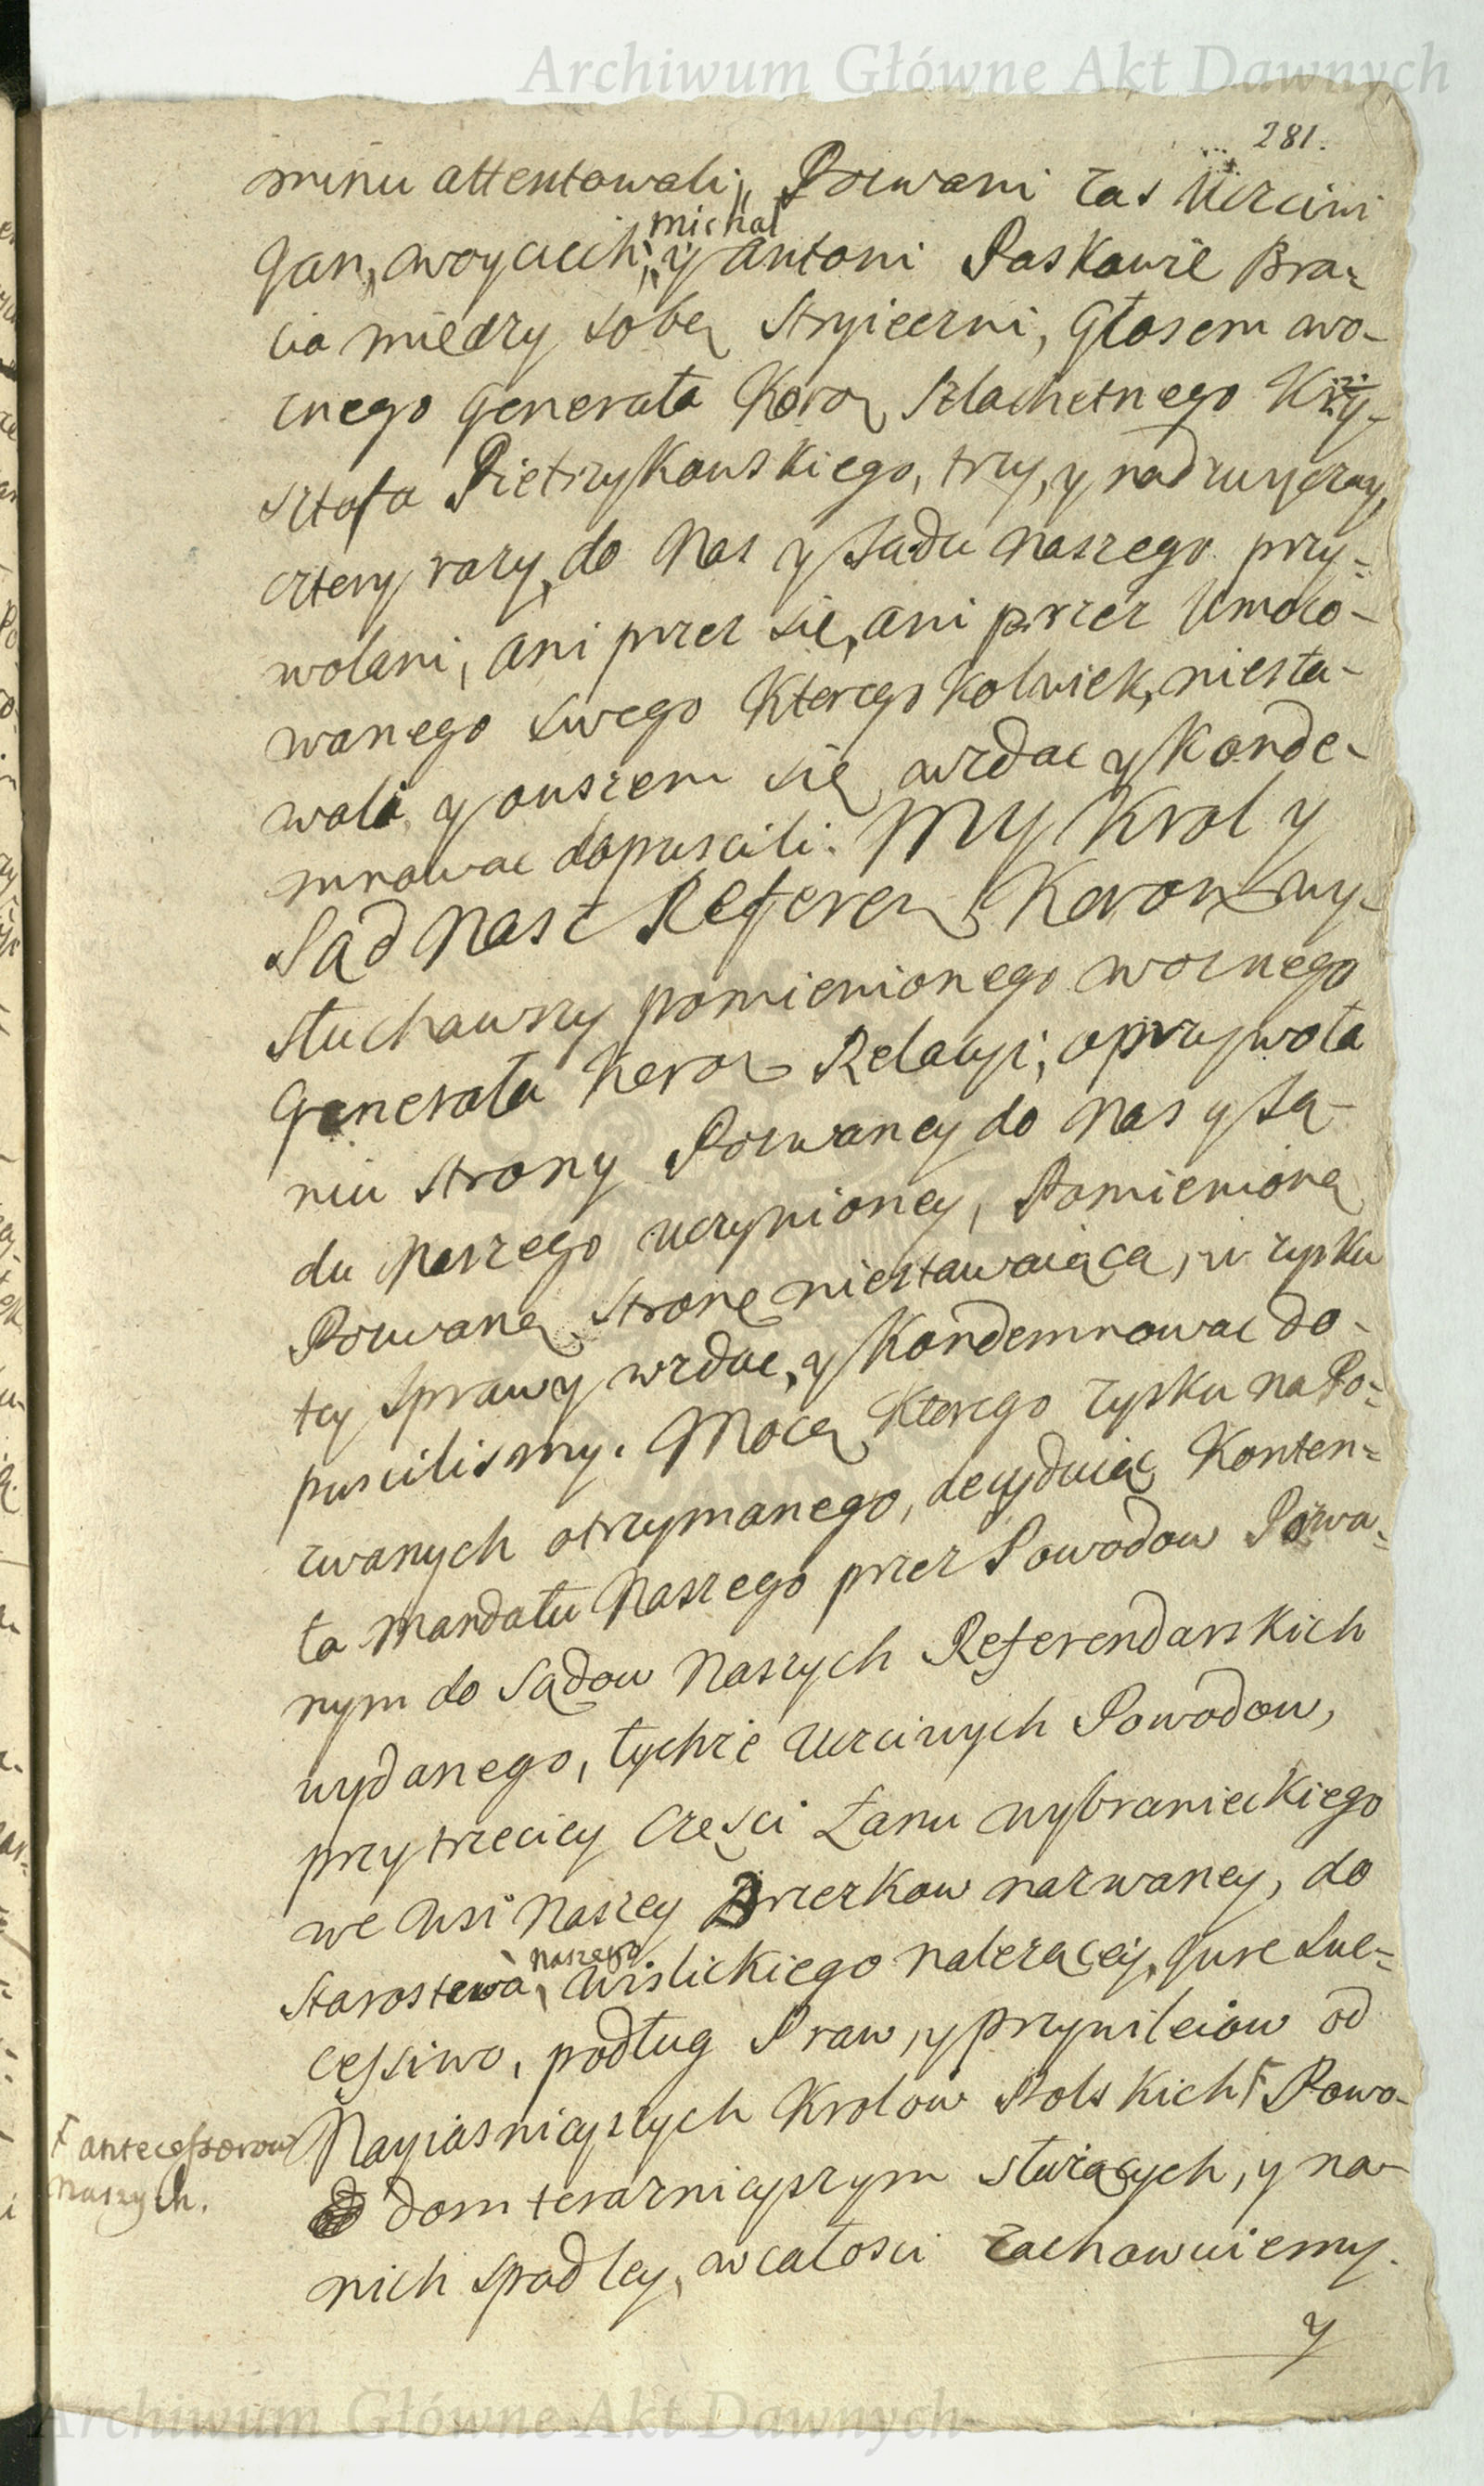 Archiwum Główne Akt Dawnych
281.
minu attentowali, Pozwani zas Uczciwi
Jan, Woyciech, Michał y Antoni Paskowie Bra-
cia między sobą Stryieczni, Głosem wo-
znego Generała Koroñ Szlachetnego Krzy-
sztofa Pietrzykowskiego, trzy, y nadzwyczay,
cztery razy, do Nas y Sądu naszego przy-
wołani, ani przez się, ani przez Umoco-
wanego swego ktoregożkolwiek, niesta-
wali y owszem się wzdac y Konde-
mnowac dopuscili. My Krol y
Sąd Nasz Referen Koron wy-
słuchawszy pomienionego woznego
Generała Koroñ Relacyi, o przywoła
niu Strony Pozwaney do Nas y Są-
du Naszego uczynioney, Pomienioną
Pozwaną Stronę niestawaiącą, w zysku
tey Sprawy wzdac, y Kondemnowac do-
puscilismy. Mocą ktorego zysku na Po-
zwanych otrzymanego, decyduiąc Konten-
ta Mandatu Naszego przez Powodow Pozwa-
nym do Sądow Naszych Referendarskich
wydanego, tychże Uczciwych Powodow,
przy trzeciey Częsci Łanu wybranieckiego
we Wsi Naszey Brzezkow nazwaney, do
Starostwa naszego Wislickiego należącey, Jure Suc-
cessivo, podług Praw, y przywileiow od
Nayiasnieyszych Krolow Polskich Ŧ Powo-
Ŧ antecessorow
naszych.
dom teraznieyszym służących, y na
nich spadłey, w całosci zachowuiemy.
y
Archiwum Główne Akt Dawnych